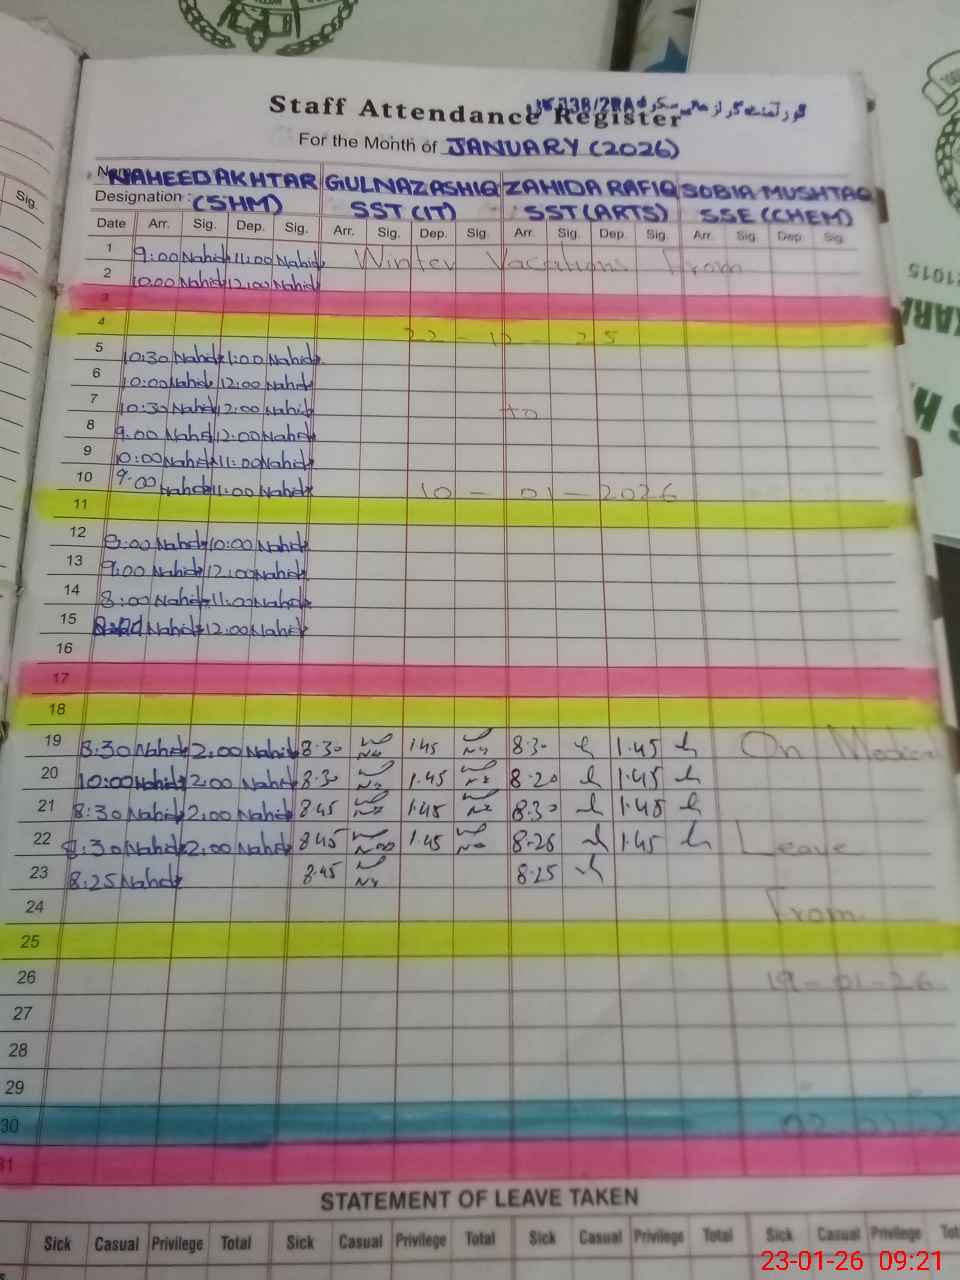 Staff Attendance Register
For the Month of JANUARY (2026)
NAHEED AKHTAR GULNAZ ASHIQ ZAHIDA RAFIQ SOBIA MUSHTAQ
Designation : (SHM) SST (IT) SST (ARTS) SSE (CHEM)
Date Arr. Sig. Dep. Sig. Arr. Sig. Dep. Sig. Arr. Sig. Dep. Sig. Arr. Sig. Dep. Sig.
1 9:00 Nahid 11:00 Nahid Winter Vacations From
2 10:00 Nahid 12:00 Nahid
3
4 22 - 12 - 25
5 10:30 Nahid 1:00 Nahid
6 10:00 Nahid 12:00 Nahid
7 10:30 Nahid 2:00 Nahid to
8 9:00 Nahid 12:00 Nahid
9 10:00 Nahid 11:00 Nahid
10 9:00 Nahid 11:00 Nahid 10 - 01 - 2026
11
12 9:00 Nahid 10:00 Nahid
13 9:00 Nahid 12:00 Nahid
14 8:00 Nahid 11:00 Nahid
15 Nahid 12:00 Nahid
16
17
18
19 8:30 Nahid 2:00 Nahid 8:30 1:45 8:30 1:45 On Medical
20 10:00 Nahid 2:00 Nahid 8:30 1:45 8:20 1:45
21 8:30 Nahid 2:00 Nahid 8:45 1:45 8:30 1:45
22 8:30 Nahid 2:00 Nahid 8:45 1:45 8:26 1:45 Leave
23 8:25 Nahid 8:45 8:25
24 From
25
26 19-01-26
27
28
29
30
31
STATEMENT OF LEAVE TAKEN
Sick Casual Privilege Total Sick Casual Privilege Total Sick Casual Privilege Total Sick Casual Privilege
23-01-26 09:21
Sig.